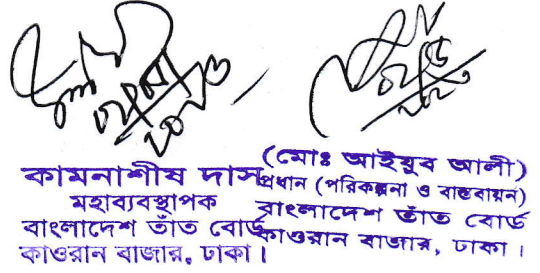 কামনাশীষ দাস
মহাব্যবস্থাপক
বাংলাদেশ তাঁত বোর্ড
কাওরান বাজার, ঢাকা।
(মোঃ আইয়ুব আলী)
প্রধান (পরিকল্পনা ও বাস্তবায়ন)
বাংলাদেশ তাঁত বোর্ড
কাওরান বাজার, ঢাকা।